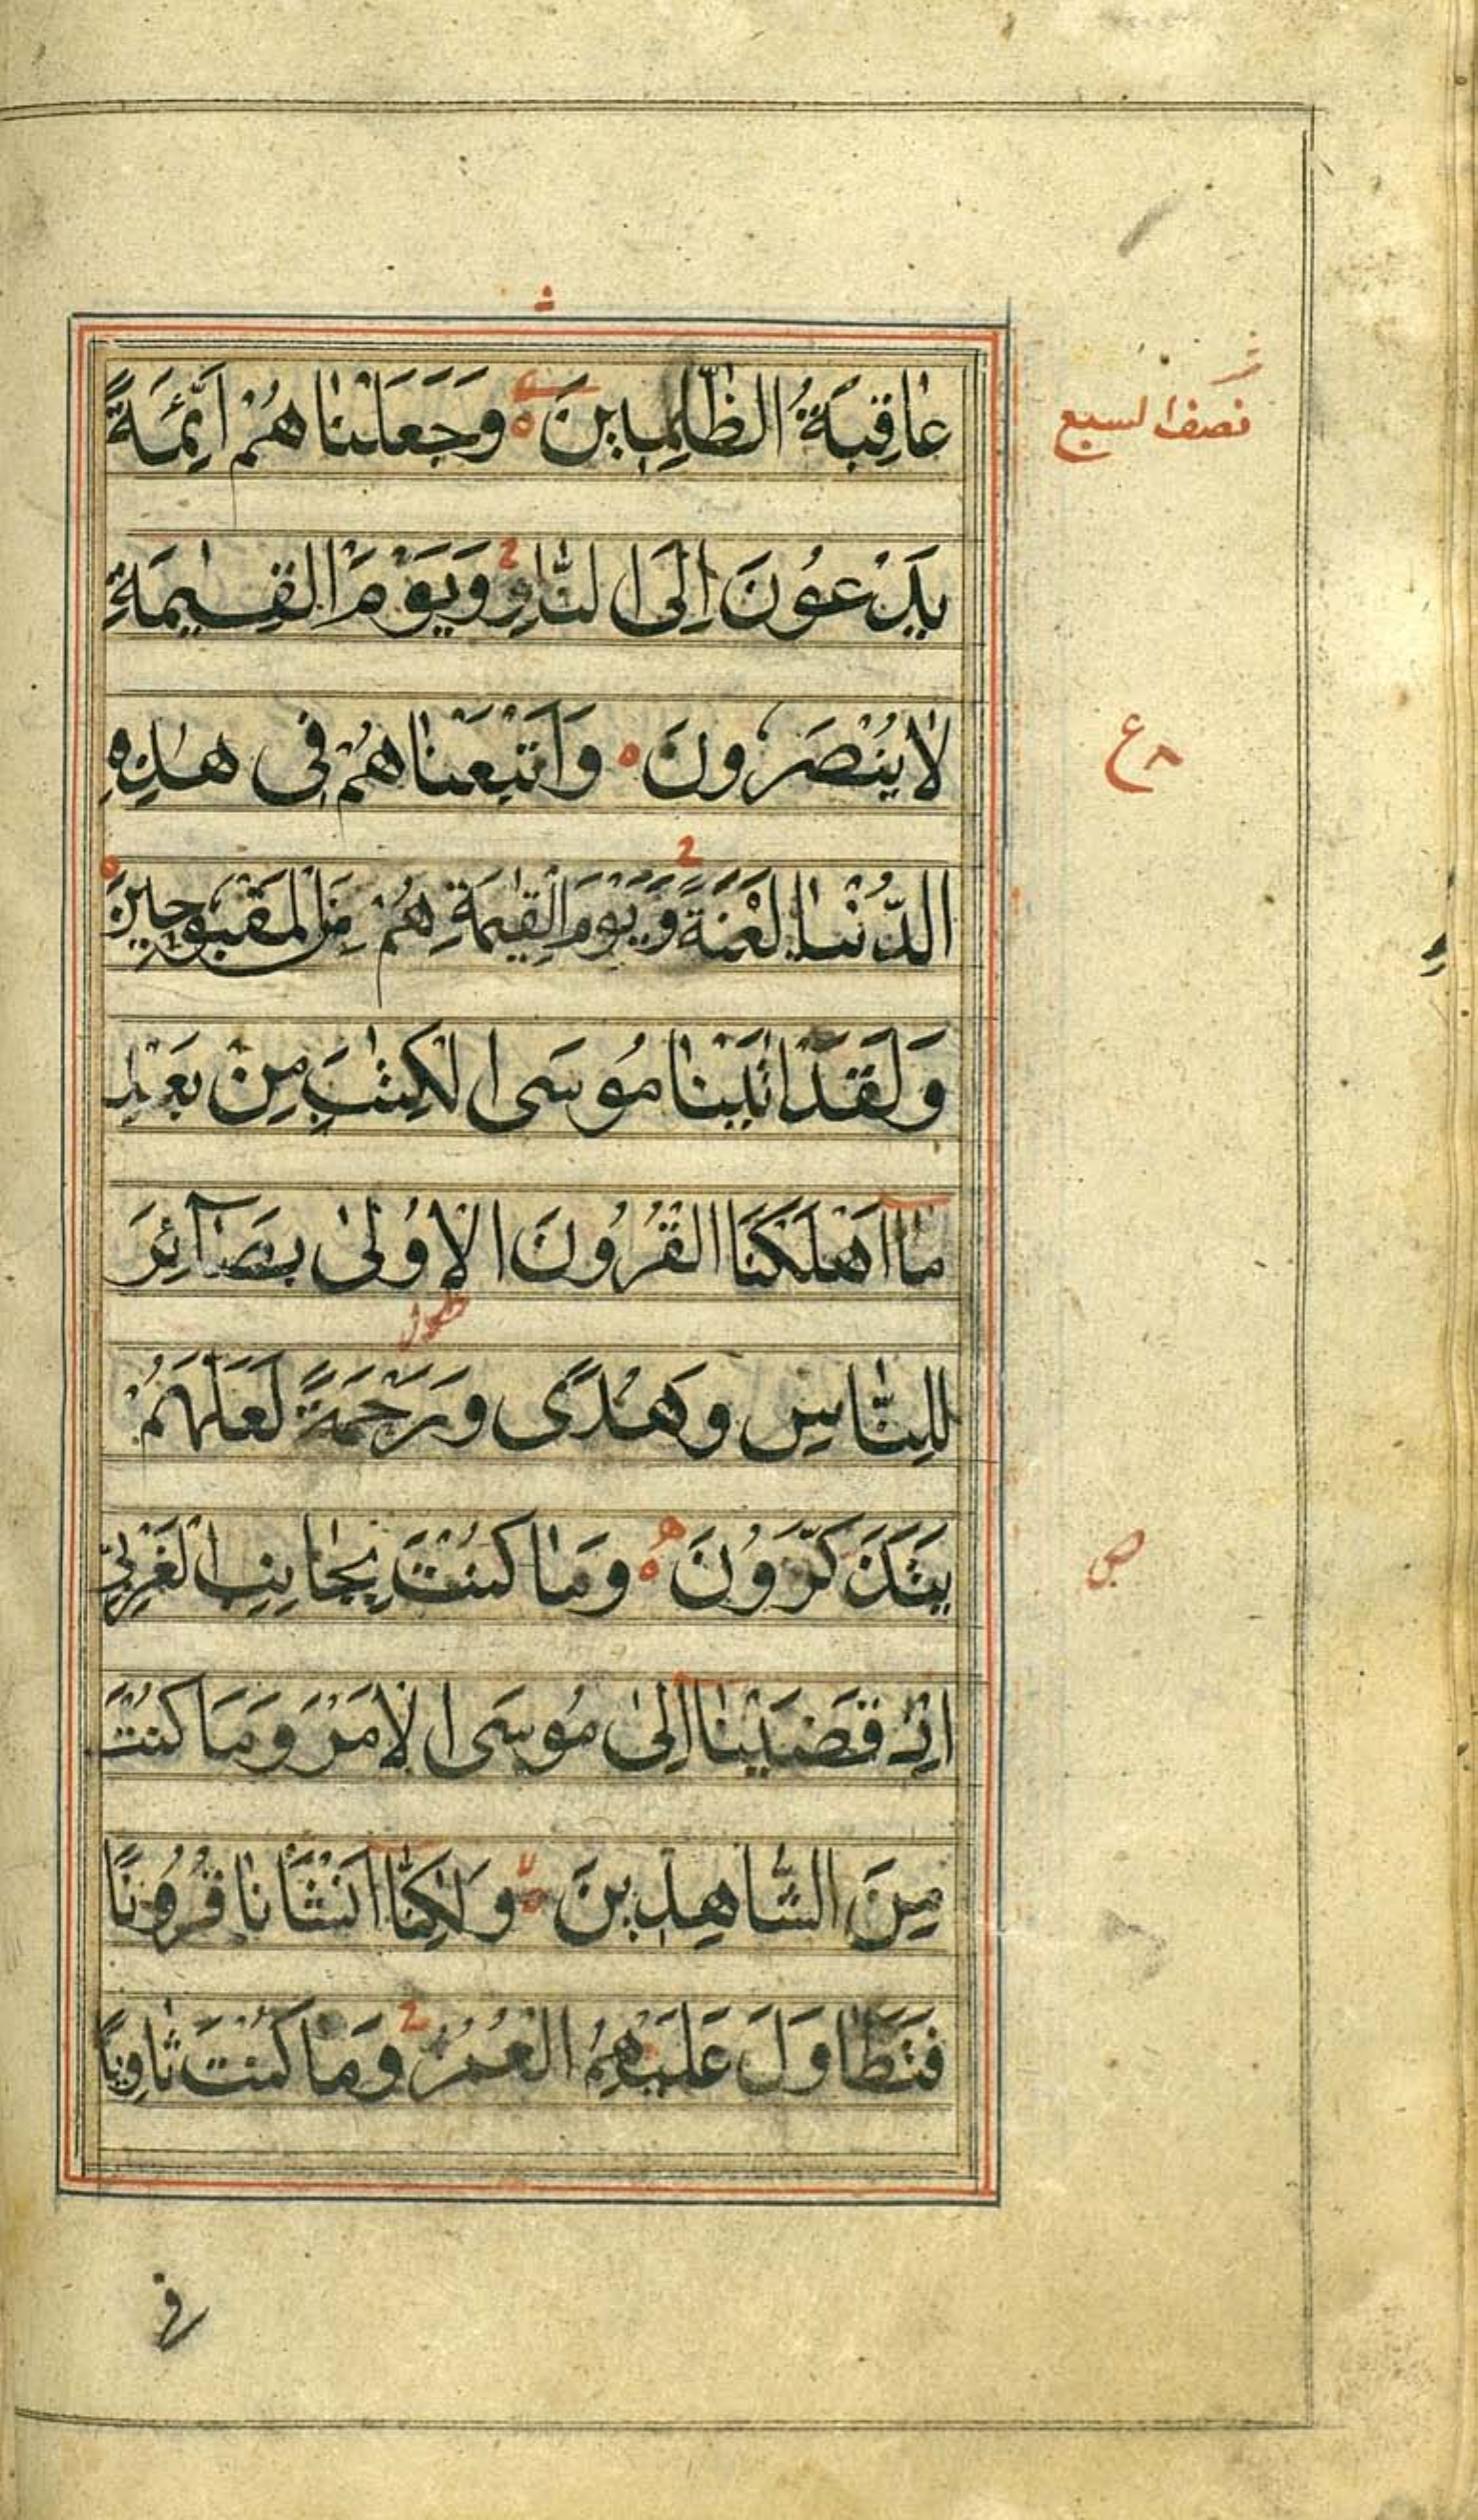 عَاقِبَةُ الظّٰلِمِينَ وَجَعَلْنَاهُمْ اَئِمَّةً
نصف السبع
يَدْعُونَ اِلَى النَّارِ وَيَوْمَ الْقِيٰمَةِ
لَا يُنْصَرُونَ وَاَتْبَعْنَاهُمْ فِى هٰذِهِ
ع ٨
الدُّنْيَا لَعْنَةً وَيَوْمَ الْقِيٰمَةِ هُمْ مِنَ الْمَقْبُوحِينَ
وَلَقَدْ اٰتَيْنَا مُوسَى الْكِتٰبَ مِنْ بَعْدِ
مَا اَهْلَكْنَا الْقُرُونَ الْاُولٰى بَصَآئِرَ
لِلنَّاسِ وَهُدًى وَرَحْمَةً لَعَلَّهُمْ
يَتَذَكَّرُونَ وَمَا كُنْتَ بِجَانِبِ الْغَرْبِيِّ
اِذْ قَضَيْنَا اِلٰى مُوسَى الْاَمْرَ وَمَا كُنْتَ
مِنَ الشَّاهِدِينَ وَلٰكِنَّا اَنْشَأْنَا قُرُونًا
فَتَطَاوَلَ عَلَيْهِمُ الْعُمُرُ وَمَا كُنْتَ ثَاوِيًا
فى